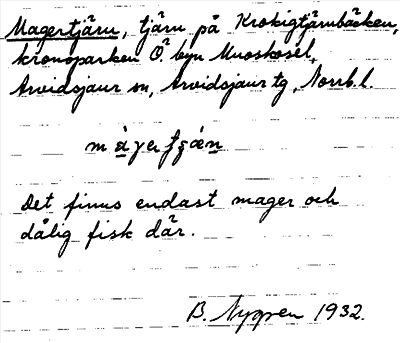 Magertjärn, tjärn på Krokigtjärnbäcken,
kronoparken Ö. byn Muoskosel,
Arvidsjaur sn, Arvidsjaur tg, Norrb. l.
Det finns endast mager och
dålig fisk där.
B. Nygren 1932.